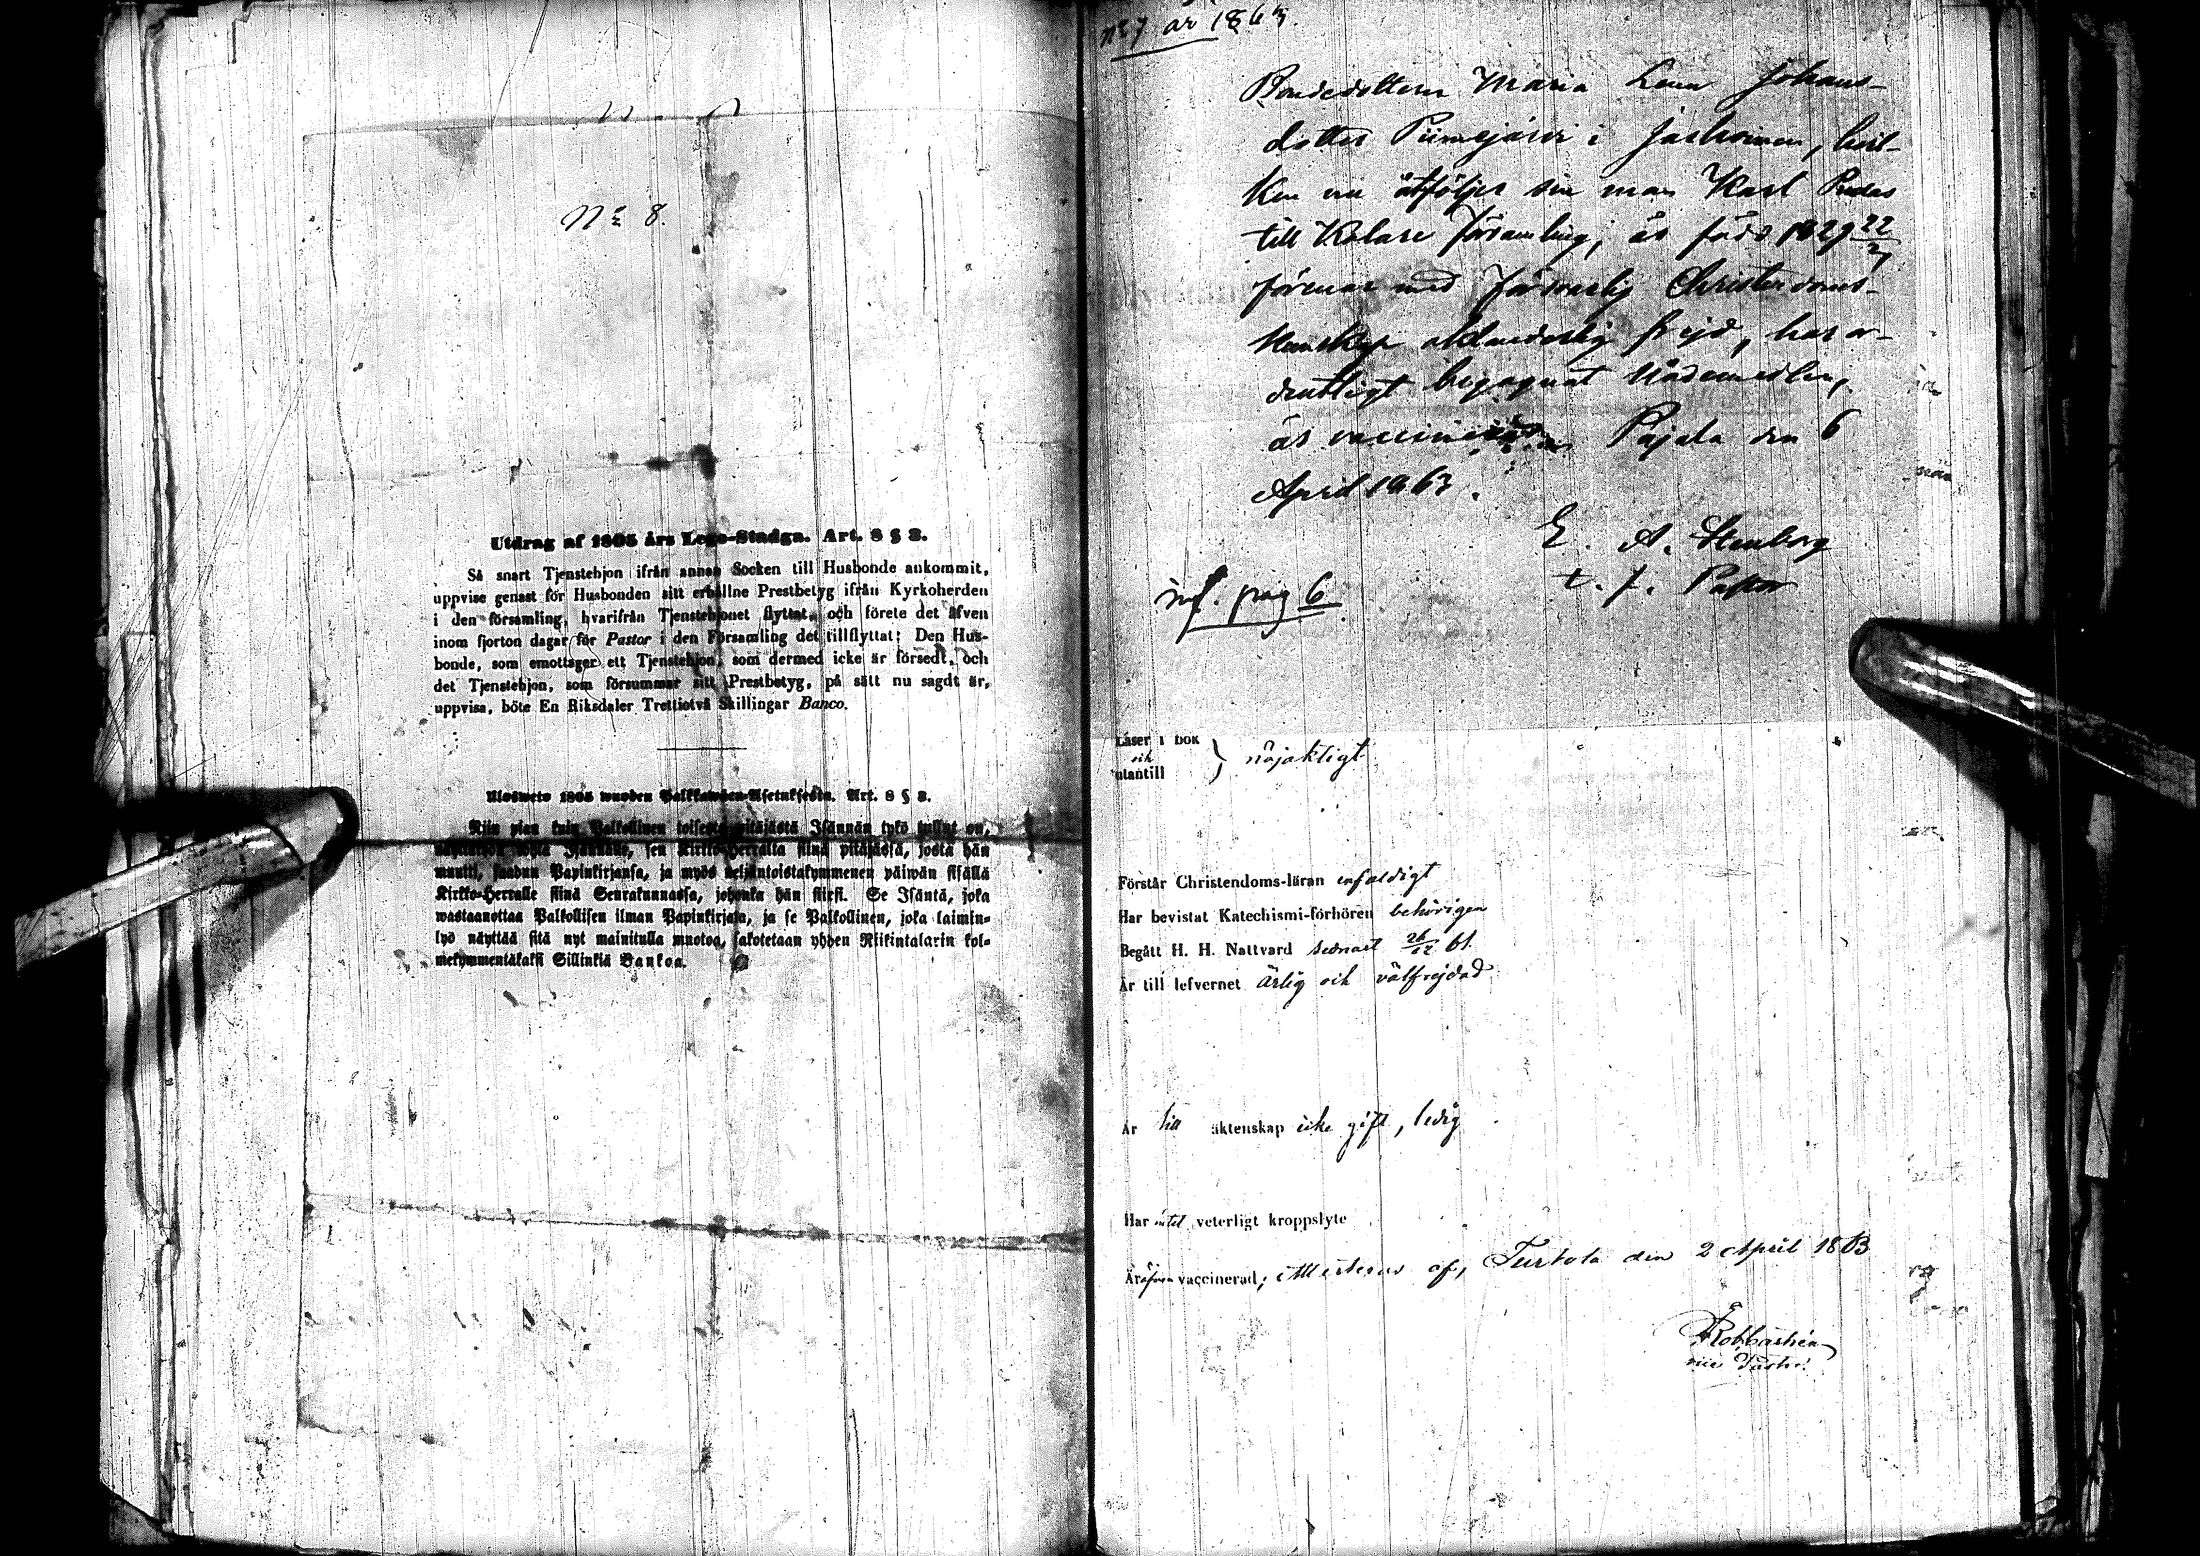 N:o 8.
Utdrag af 1805 års Lego-Stadga. Art. 8 § 3.
Så snart Tjenstehjon ifrån annan Socken till Husbonde ankommit,
uppvise genast för Husbonden sitt erhållne Prestbetyg ifrån Kyrkoherden
i den församling, hvarifrån Tjenstehjonet flyttat, och förete det äfven
inom fjorton dagar för Pastor i den Församling det tillflyttat; Den Hus-
bonde, som emottager ett Tjenstehjon, som dermed icke är försedt, och
det Tjenstehjon, som försummar sitt Prestbetyg, på sätt nu sagdt är,
uppvisa, böte En Riksdaler Trettiotvå Skillingar Banco.
Ulosweto 1805 wuoden Palkkawäen-Asetuksesta. Art. 8 § 3.
Niin pian kuin Palkollinen toisesta pitäjästä Isännän tykö tullut on,
Isännäns, sen Kirkko-Herralta siinä pitäjässä, josta hän
muutti, saadun Papinkirjansa, ja myös neljäntoistakymmenen päiwän sisällä
Kirkko-Herralle siinä Seurakunnassa, johonka hän siirsi. Se Isäntä, joka
wastaanottaa Palkollisen ilman Papinkirjata, ja se Palkollinen, joka laimin-
lyö näyttää sitä nyt mainitulla muotoa, sakotetaan yhden Riikintalarin kol-
mekymmentäkaksi Sillinkiä Bankoa.
No 7 år 1863.
Bondedottern Maria Lena Johans-
dotter Piimejärvi i Jarhoinen, hvil-
ken nu åtföljer sin man Karl Rudas
till Kolare församling, är född 1829 22/7
förenar med försvarlig Christendoms-
kunskap oklanderlig frejd, har or-
dentligt begagnat Nådemedlen,
är vaccinerad Pajala den 6
April 1863.
E. A. Stenborg
t. f. Pastor
inf. pag 6
Läser i bok
och
utantill } nöjaktigt
Förstår Christendoms-läran enfaldigt
Har bevistat Katechismi-förhören behörigen
Begått H. H. Nattvard sednast 26/12 61.
Är till lefvernet ärlig och välfrejdad
Är till äktenskap icke gift, ledig
Har intet veterligt kroppslyte
Är äfven vaccinerad; attesteras af, Turtola den 2 April 1863
vice Pastor.